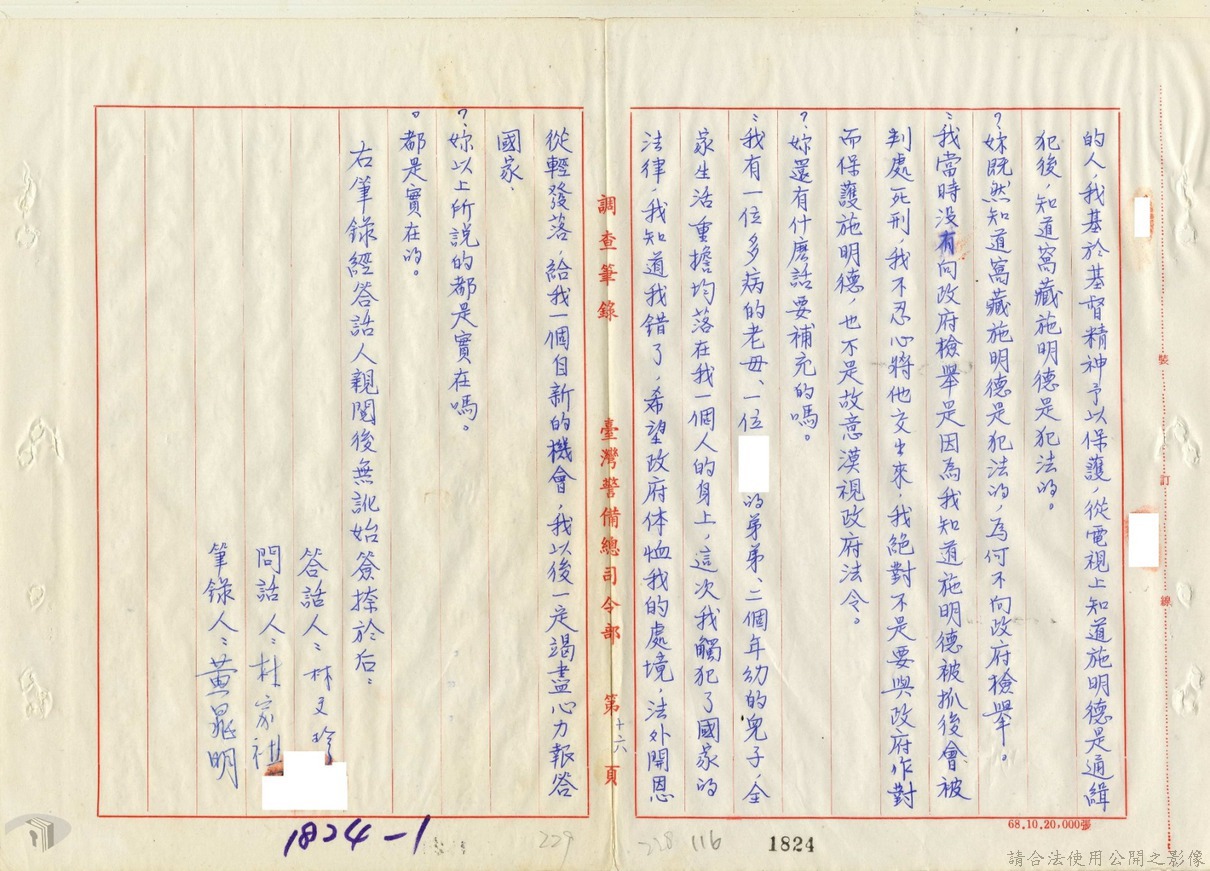 的人，我基於基督精神予以保護，從電視上知道施明德是通緝
犯後，知道窩藏施明德是犯法的。
？妳既然知道窩藏施明德是犯法的，為何不向政府檢舉。
：我當時没有向政府檢舉是因為我知道施明德被抓後會被
判處死刑，我不忍心將他交出來，我絕對不是要與政府作對
而保護施明德，也不是故意漠視政府法令。
？妳還有什麽話要補充的嗎。
：我有一位多病的老母、一位
的弟弟、二個年幼的兒子，全
家生活重擔均落在我一個人的身上，這次我觸犯了國家的
法律，我知道我錯了，希望政府体恤我的處境，法外開恩
調查筆錄
臺灣警備總司令部
第十六頁
從輕發落，給我一個自新的機會，我以後一定竭盡心力報答
國家、
？妳以上所說的都是實在嗎。
。都是實在的。
右筆錄經答話人親閱後無訛始簽捺於后：
答話人：林文珍
問話人：杜家社
筆錄人：黃晁明
裝
訂
線
68.10.20,000張
1824-1
229
228
116
1824
請合法使用公開之影像